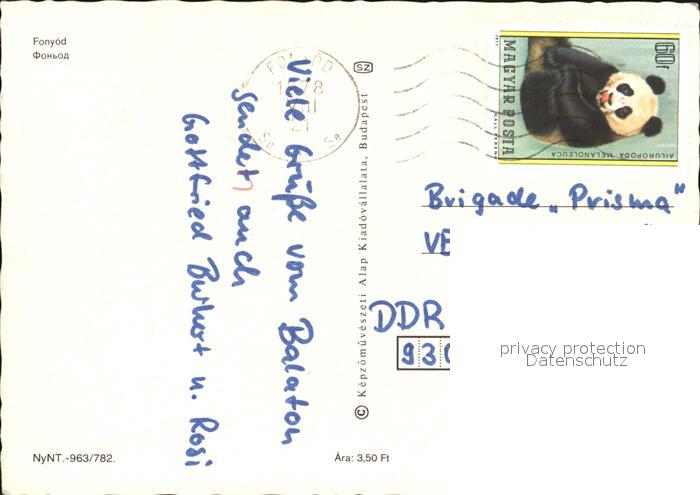 Fonyód
Фоньод
Viele Grüße vom Balaton
sendet auch
Gottfried u. Rosi
NyNT.-963/782.
Ára: 3,50 Ft
© Képzőművészeti Alap Kiadóvállalata, Budapest
SZ
FONYÓD
60f
MAGYAR POSTA
AILUROPODA MELANOLEUCA
Brigade „Prisma"
VE
DDR
930
privacy protection
Datenschutz